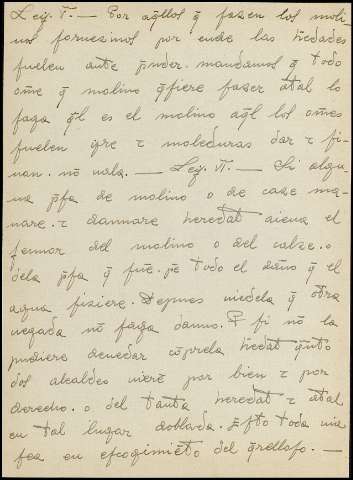 Ley. V. — Por aq̃llos q̃ fazen los moli-
nos fornezinos por ende las h̃edades
suelen ante p̃nder. mandamos q̃ todo
ome q̃ molino q̃siere fazer atal lo
faga q̃l es el molino aq̃l los omes
suelen q̃re τ moleduras dar τ fi-
nan. nõ vala. — Ley. VI. — Si algu-
na p̃sa de molino o de caze ma-
nare. τ dannare heredat aiena el
sennor del molino o del calze. o
dela p̃sa q̃ fue. p̃e todo el daño q̃ el
agua fiziere. Depues viedela q̃ otra
uegada nõ faga danno. E si nõ la
pudiere deuedar cõprela h̃edat q̃nto
dos alcaldes uierẽ por bien τ por
derecho. o del tanta heredat τ atal
en tal lugar doblada. Esto todo uia
sea en escogimiẽto del q̃relloso. —